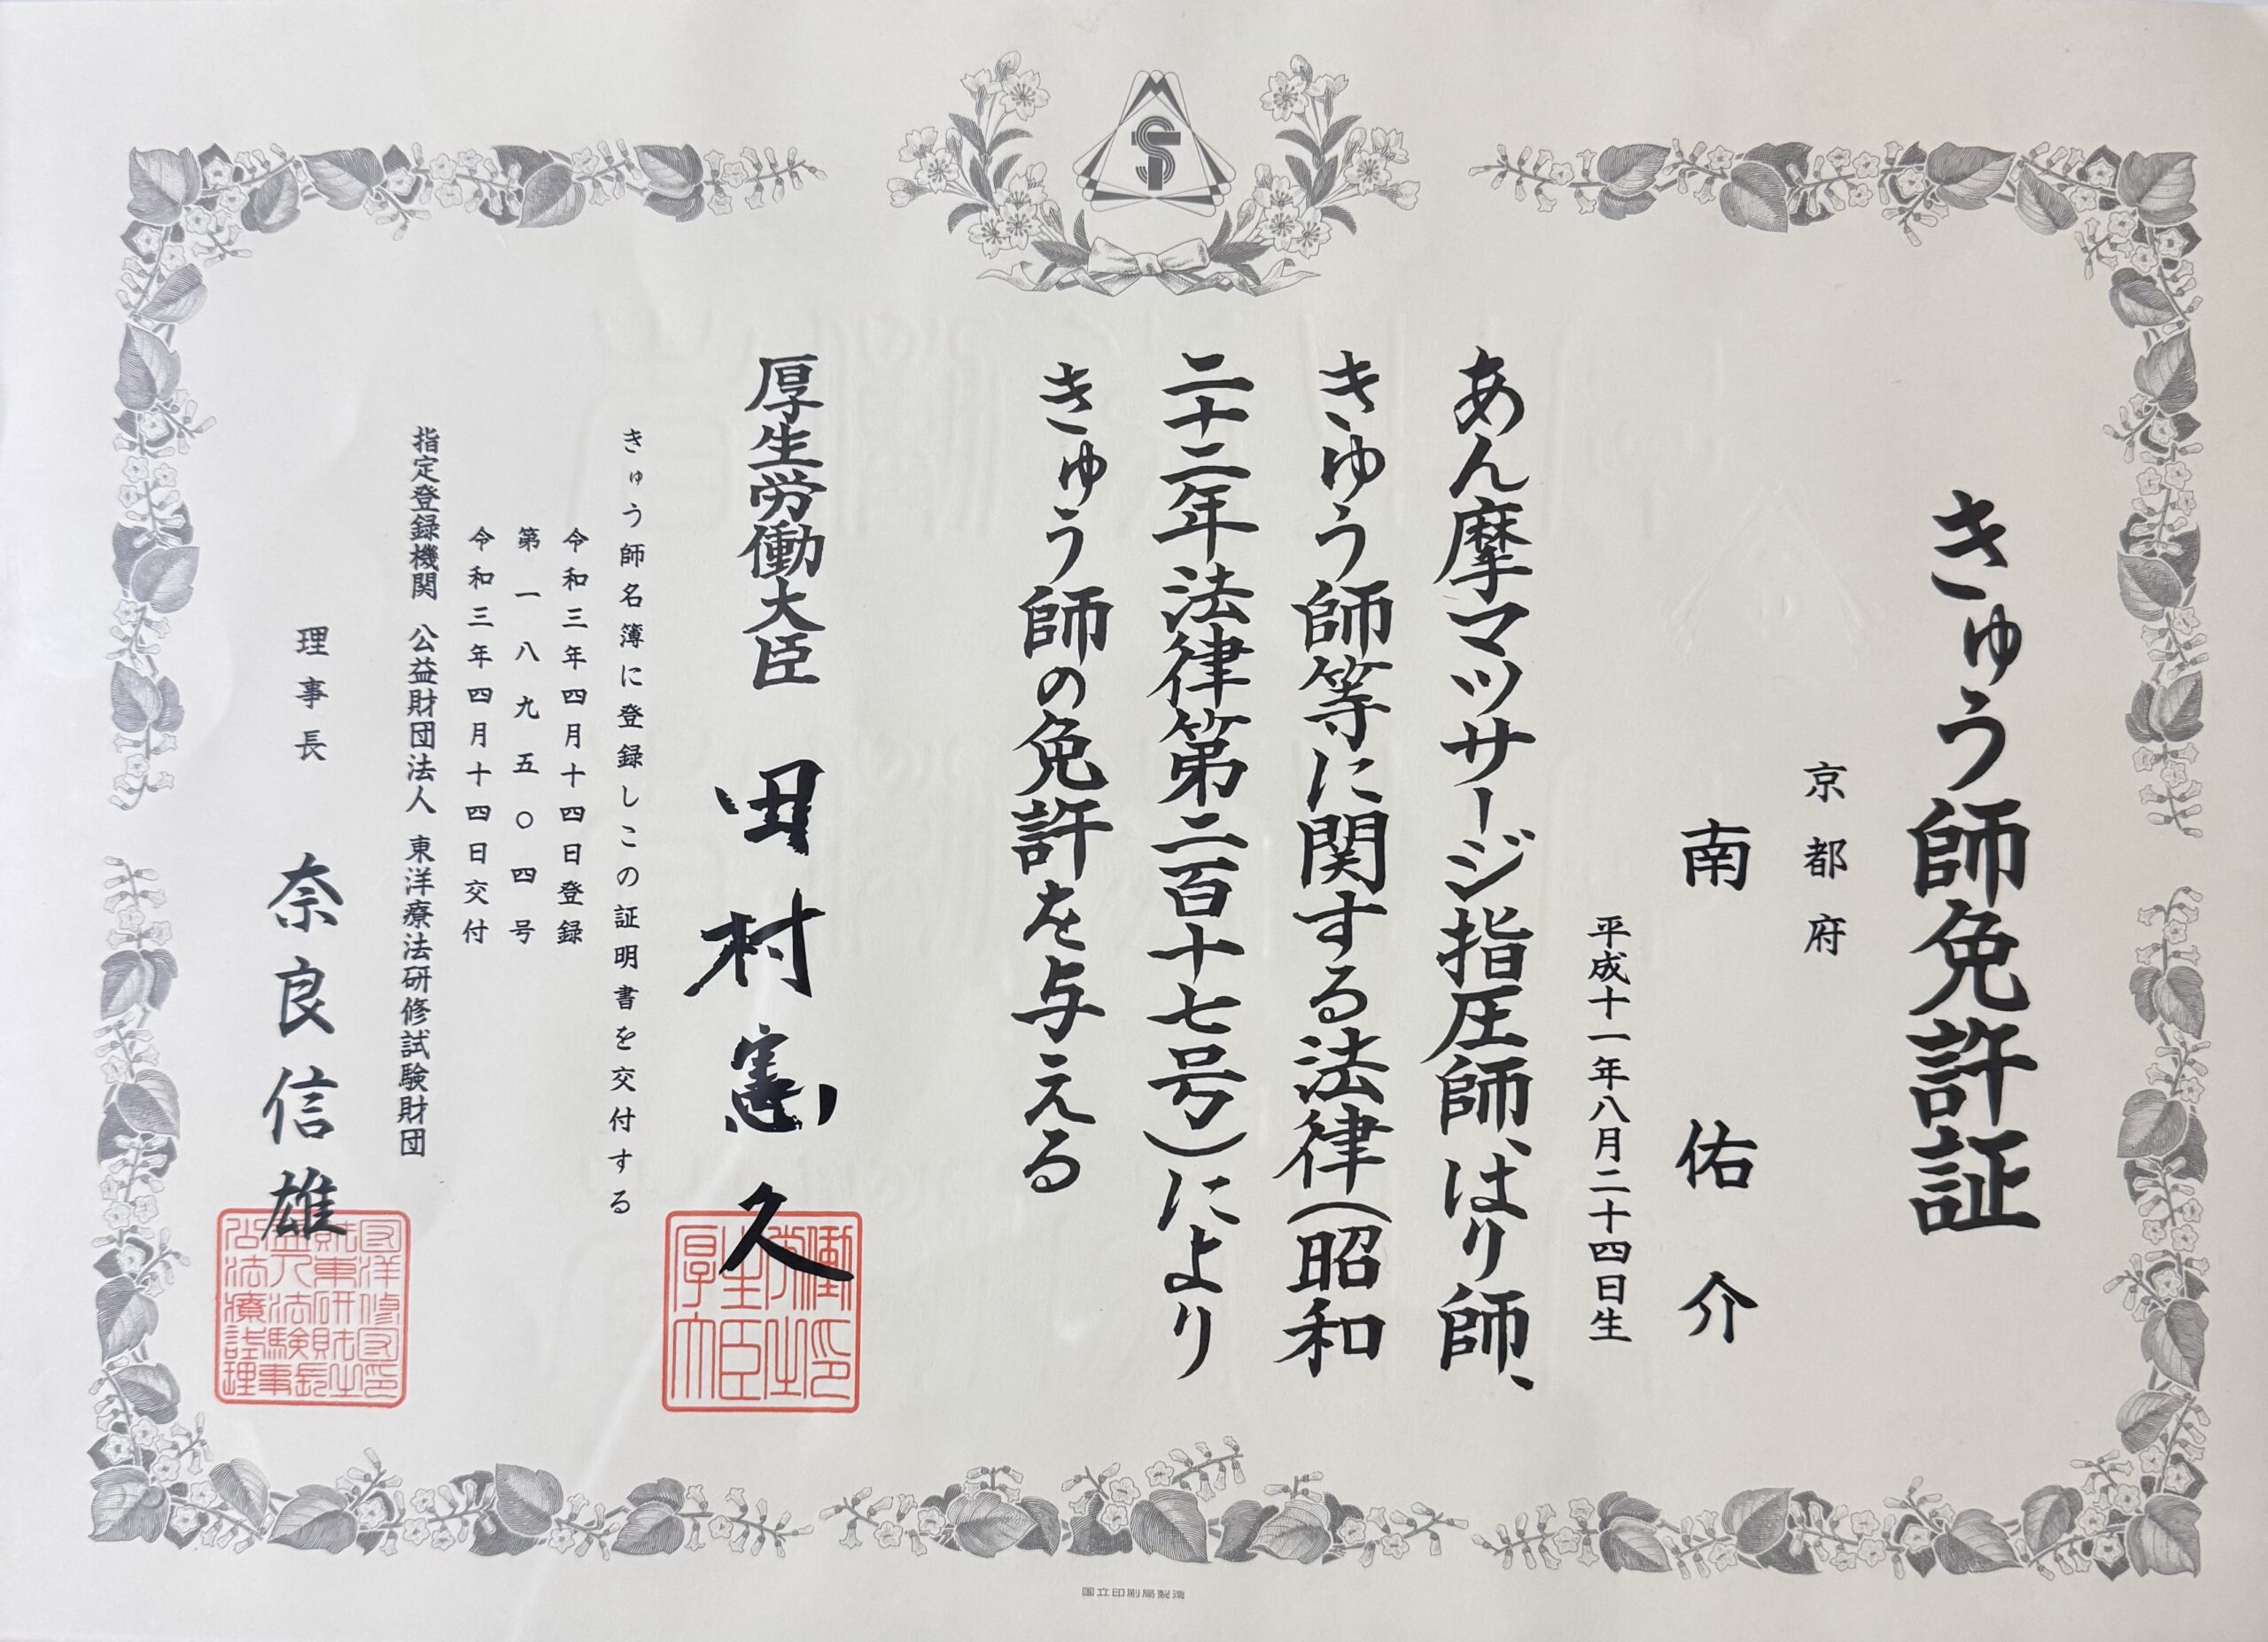 きゅう師免許証
京都府
南佑介
平成十一年八月二十四日生
あん摩マツサージ指圧師、はり師、
きゆう師等に関する法律(昭和
二十二年法律第二百十七号)により
きゅう師の免許を与える
厚生労働大臣 田村憲久
きゅう師名簿に登録しこの証明書を交付する
令和三年四月十四日登録
第一八九五〇四号
令和三年四月十四日交付
指定登録機関 公益財団法人 東洋療法研修試験財団
理事長 奈良信雄
国立印刷局製造